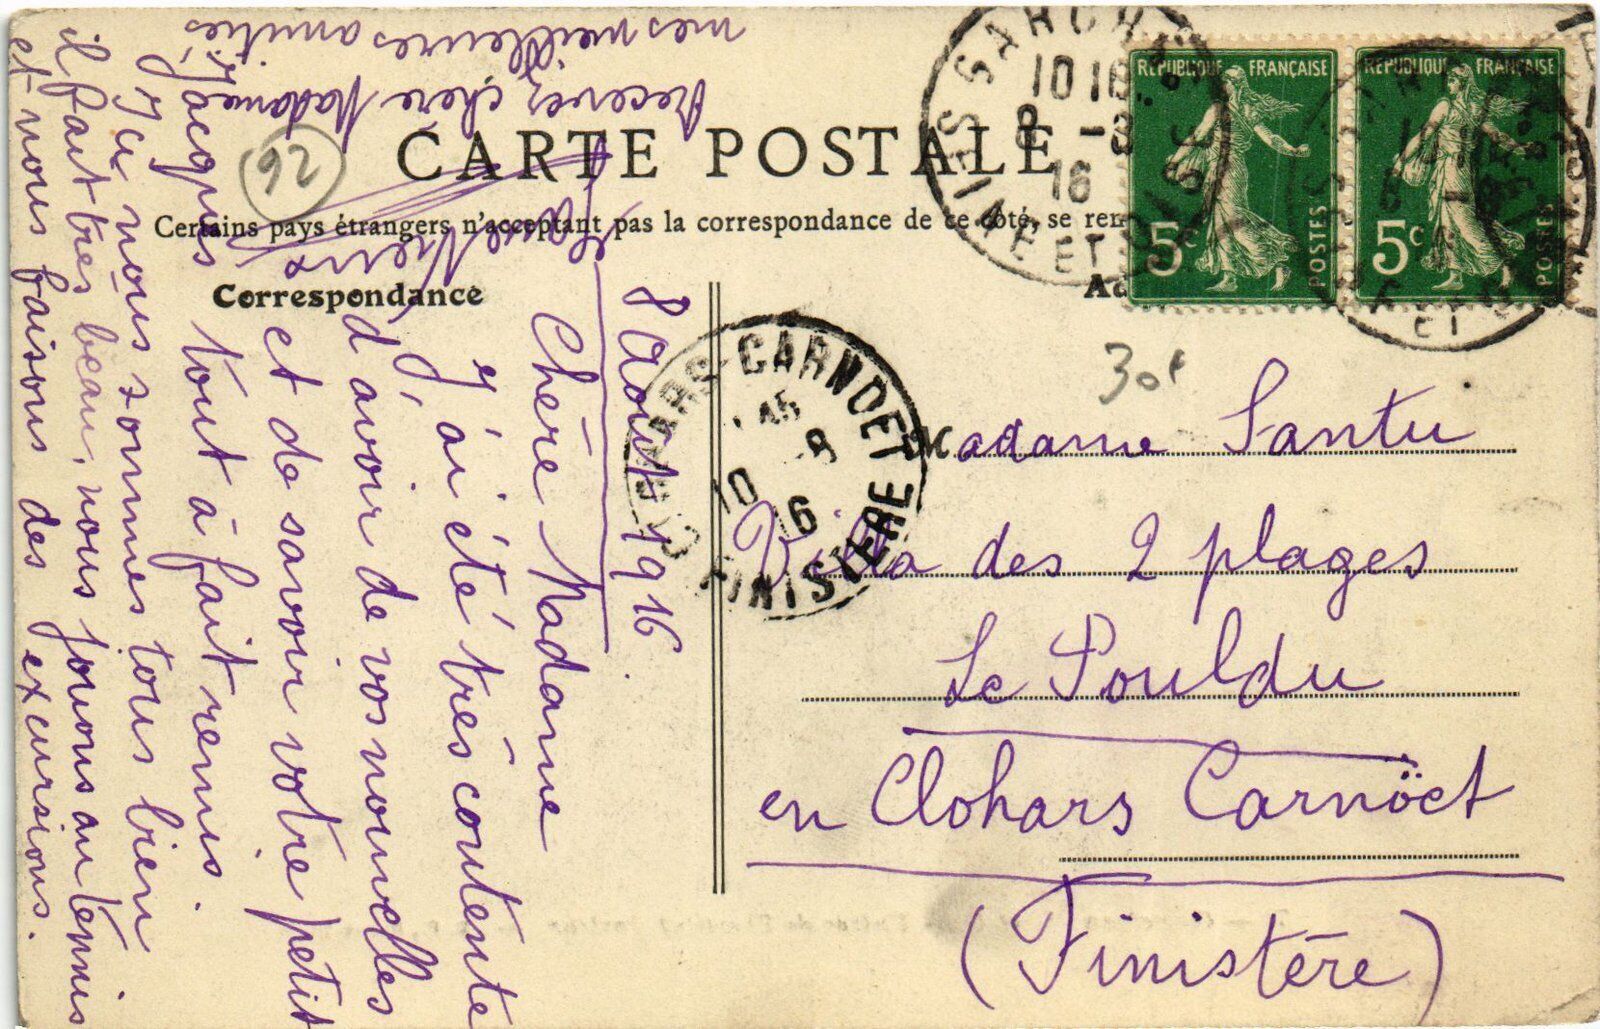 CARTE POSTALE
Certains pays étrangers n'acceptent pas la correspondance de ce côté, se ren
Correspondance
8 Août 1916
Chère Madame
J'ai été très contente
d'avoir de vos nouvelles
et de savoir votre petit
Jacques tout à fait remis.
Ici nous sommes tous bien
il fait très beau, nous jouons au tennis
et nous faisons des excursions.
Recevez chère Madame
mes meilleures amitiés
Madame Santu
Villa des 2 plages
Le Pouldu
en Clohars Carnöet
(Finistère)
92
30f
REPUBLIQUE FRANÇAISE
5c POSTES
REPUBLIQUE FRANÇAISE
5c POSTES
SARCELLES
10 16
8 -8
16
SEINE ET OISE
CLOHARS-CARNOET
10 -8
16
FINISTERE